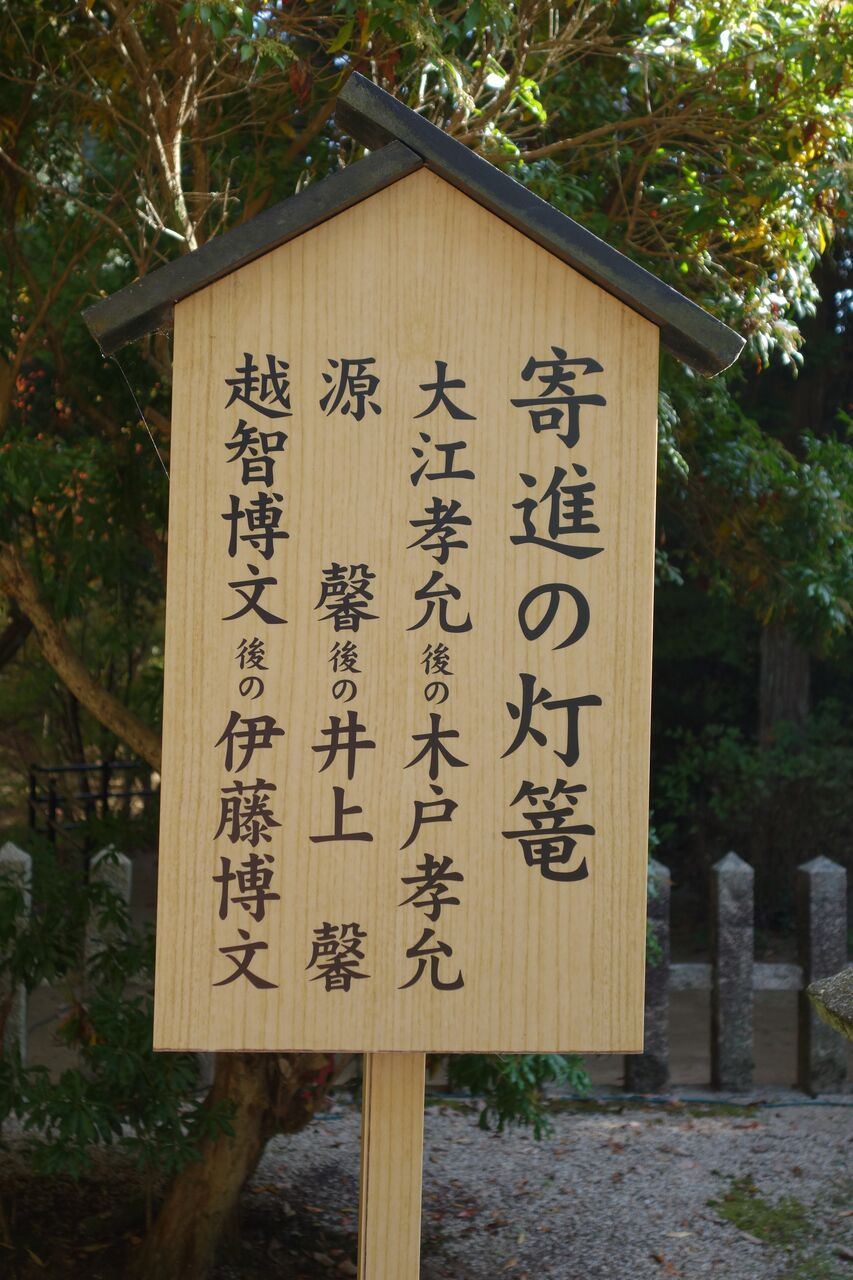 寄進の灯篭
大江孝允後の木戸孝允
源　馨後の井上　馨
越智博文後の伊藤博文